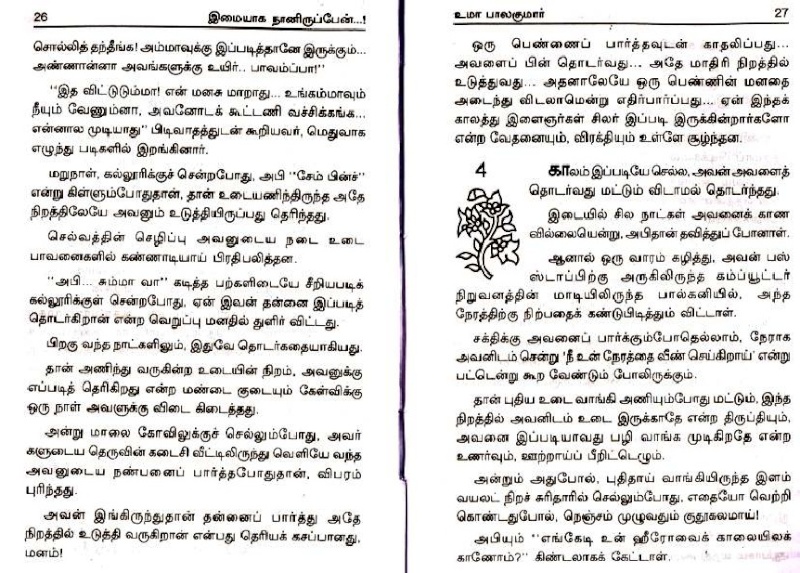 26
இமையாக நானிருப்பேன்...!
சொல்லித் தந்தீங்க! அம்மாவுக்கு இப்படித்தானே இருக்கும்...
அண்ணான்னா அவங்களுக்கு உயிர்.. பாவம்ப்பா!"
"இத விட்டுடும்மா! என் மனசு மாறாது... உங்கம்மாவும்
நீயும் வேணும்னா, அவனோடக் கூட்டணி வச்சிக்கங்க...
என்னால முடியாது" பிடிவாதத்துடன் கூறியவர், மெதுவாக
எழுந்து படிகளில் இறங்கினார்.
மறுநாள், கல்லூரிக்குச் சென்றபோது, அபி "சேம் பின்ச்"
என்று கிள்ளும்போதுதான், தான் உடையணிந்திருந்த அதே
நிறத்திலேயே அவனும் உடுத்தியிருப்பது தெரிந்தது.
செல்வத்தின் செழிப்பு அவனுடைய நடை உடை
பாவனைகளில் கண்ணாடியாய் பிரதிபலித்தன.
"அபி... சும்மா வா" கடித்த பற்களிடையே சீறியபடிக்
கல்லூரிக்குள் சென்றபோது, ஏன் இவன் தன்னை இப்படித்
தொடர்கிறான் என்ற வெறுப்பு மனதில் துளிர் விட்டது.
பிறகு வந்த நாட்களிலும், இதுவே தொடர்கதையாகியது.
தான் அணிந்து வருகின்ற உடையின் நிறம், அவனுக்கு
எப்படித் தெரிகிறது என்ற மண்டை குடையும் கேள்விக்கு
ஒரு நாள் அவளுக்கு விடை கிடைத்தது.
அன்று மாலை கோவிலுக்குச் செல்லும்போது, அவர்
களுடைய தெருவின் கடைசி வீட்டிலிருந்து வெளியே வந்த
அவனுடைய நண்பனைப் பார்த்தபோதுதான், விபரம்
புரிந்தது.
அவன் இங்கிருந்துதான் தன்னைப் பார்த்து அதே
நிறத்தில் உடுத்தி வருகிறான் என்பது தெரியக் கசப்பானது,
மனம்!
உமா பாலகுமார்
27
ஒரு பெண்ணைப் பார்த்தவுடன் காதலிப்பது...
அவளைப் பின் தொடர்வது... அதே மாதிரி நிறத்தில்
உடுத்துவது... அதனாலேயே ஒரு பெண்ணின் மனதை
அடைந்து விடலாமென்று எதிர்பார்ப்பது... ஏன் இந்தக்
காலத்து இளைஞர்கள் சிலர் இப்படி இருக்கின்றார்களோ
என்ற வேதனையும், விரக்தியும் உள்ளே சூழ்ந்தன.
4
காலம் இப்படியே செல்ல, அவன் அவளைத்
தொடர்வது மட்டும் விடாமல் தொடர்ந்தது.
இடையில் சில நாட்கள் அவனைக் காண
வில்லையென்று, அபிதான் தவித்துப் போனாள்.
ஆனால் ஒரு வாரம் கழித்து, அவன் பஸ்
ஸ்டாப்பிற்கு அருகிலிருந்த கம்ப்யூட்டர்
நிறுவனத்தின் மாடியிலிருந்த பால்கனியில், அந்த
நேரத்திற்கு நிற்பதைக் கண்டுபிடித்தும் விட்டாள்.
சக்திக்கு அவனைப் பார்க்கும்போதெல்லாம், நேராக
அவனிடம் சென்று 'நீ உன் நேரத்தை வீண் செய்கிறாய்' என்று
பட்டென்று கூற வேண்டும் போலிருக்கும்.
தான் புதிய உடை வாங்கி அணியும்போது மட்டும், இந்த
நிறத்தில் அவனிடம் உடை இருக்காதே என்ற திருப்தியும்,
அவனை இப்படியாவது பழி வாங்க முடிகிறதே என்ற
உணர்வும், ஊற்றாய்ப் பீறிட்டெழும்.
அன்றும் அதுபோல், புதிதாய் வாங்கியிருந்த இளம்
வயலட் நிறச் சுரிதாரில் செல்லும்போது, எதையோ வெற்றி
கொண்டதுபோல், நெஞ்சம் முழுவதும் குதூகலமாய்!
அபியும் "எங்கேடி உன் ஹீரோவைக் காலையிலக்
காணோம்?" கிண்டலாகக் கேட்டாள்.